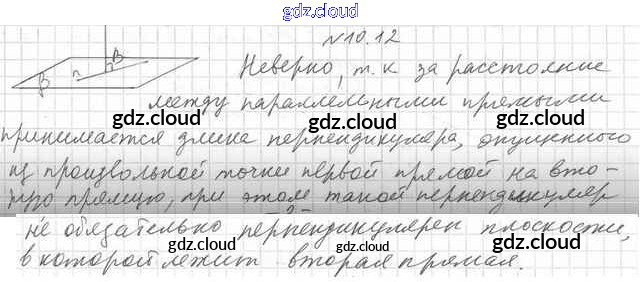 gdz.cloud
№10.12
В
Неверно, т.к за расстояние
между параллельными прямыми
принимается длина перпендикуляра, опущенного
из произвольной точки первой прямой на вто-
рую прямую, при этом такой перпендикуляр
не обязательно перпендикулярен плоскости,
в которой лежит вторая прямая.
gdz.cloud
gdz.cloud
gdz.cloud
gdz.cloud
gdz.cloud
gdz.cloud
gdz.cloud
gdz.cloud
gdz.cloud